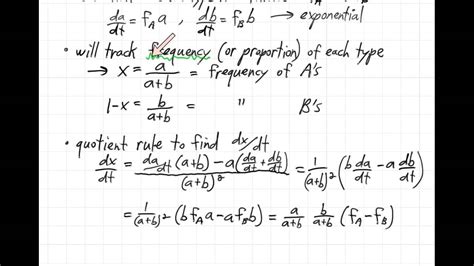 da/dt = f_A a , db/dt = f_B b → exponential
• will track frequency (or proportion) of each type
→ x = a/(a+b) = frequency of A's
1-x = b/(a+b) = " B's
• quotient rule to find dx/dt
dx/dt = (da/dt (a+b) - a(da/dt + db/dt))/(a+b)² = 1/(a+b)² (b da/dt - a db/dt)
= 1/(a+b)² (b f_A a - a f_B b) = a/(a+b) b/(a+b) (f_A - f_B)